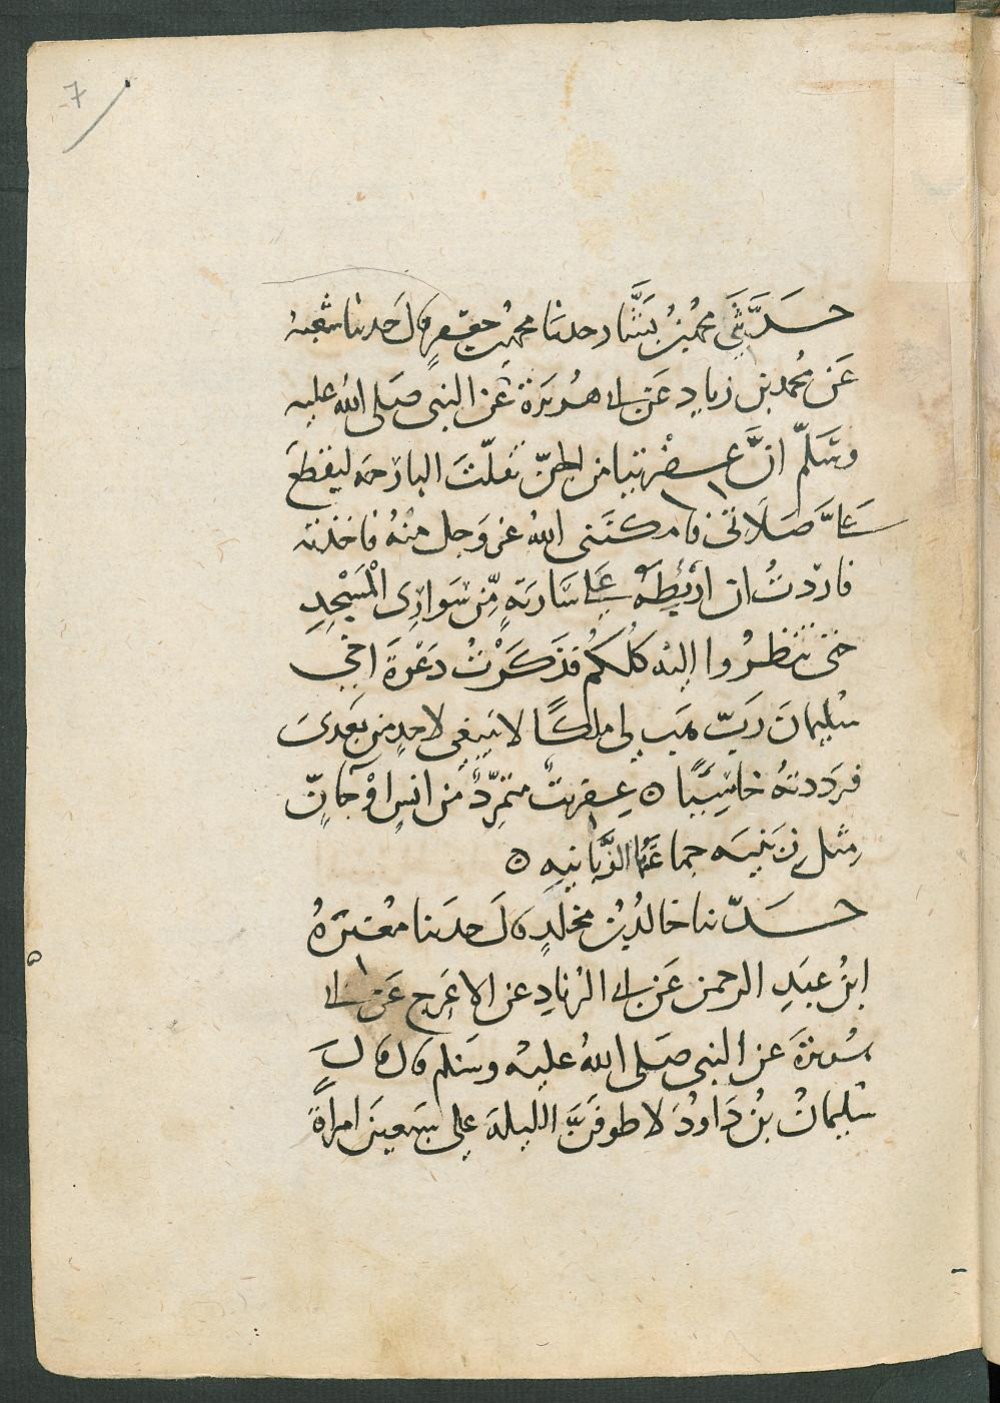 7
حَدَّثَنِي محمدُ بنُ بَشَّار حدثنا محمد بن جعفرٍ قال حدثنا شعبة
عَن مُحمد بن زيادٍ عَن ابي هُرَيرَة عَن النبي صَلى اللهُ عليه
وسَلّم انَّ عِفْريتًا من الجنّ تفلّتَ البارحَة ليقطعَ
عَليَّ صَلَاتي فامكنَنى اللهُ عز وَجل مِنْهُ فاخذته
فاردتُ ان ارْبُطَهُ عَلى سَاريَةٍ مِّن سَوارِى الْمَسْجِدِ
حتى تنظُروا اليْه كلكُم فذكَرْتُ دَعْوَةَ اخي
سُليمانَ رَبّ هَب لى ملكًا لا ينبغي لاحدٍ من بَعدىَ
فردَدتهُ خاسِئًا ٥ عِفريتٌ متمرِّدٌ من انسٍ اوْ جَانٍّ
مِثل زِبْنِيَه جماعَتُهَا الزَّبانيه ٥
حَدّثنا خالدُ بنُ مخلدٍ قالَ حدثنا مُغيرَةُ
ابنُ عبَدِ الرحمن عَن ابي الزنادِ عن الاعرَج عَن ابي
هُريرَةَ عن النبي صَلى اللهُ عليْه وسَلم قال قالَ
سُليمانُ بنُ دَاودَ لاطوفَنَّ الليلةَ على سَبعينَ امراةً